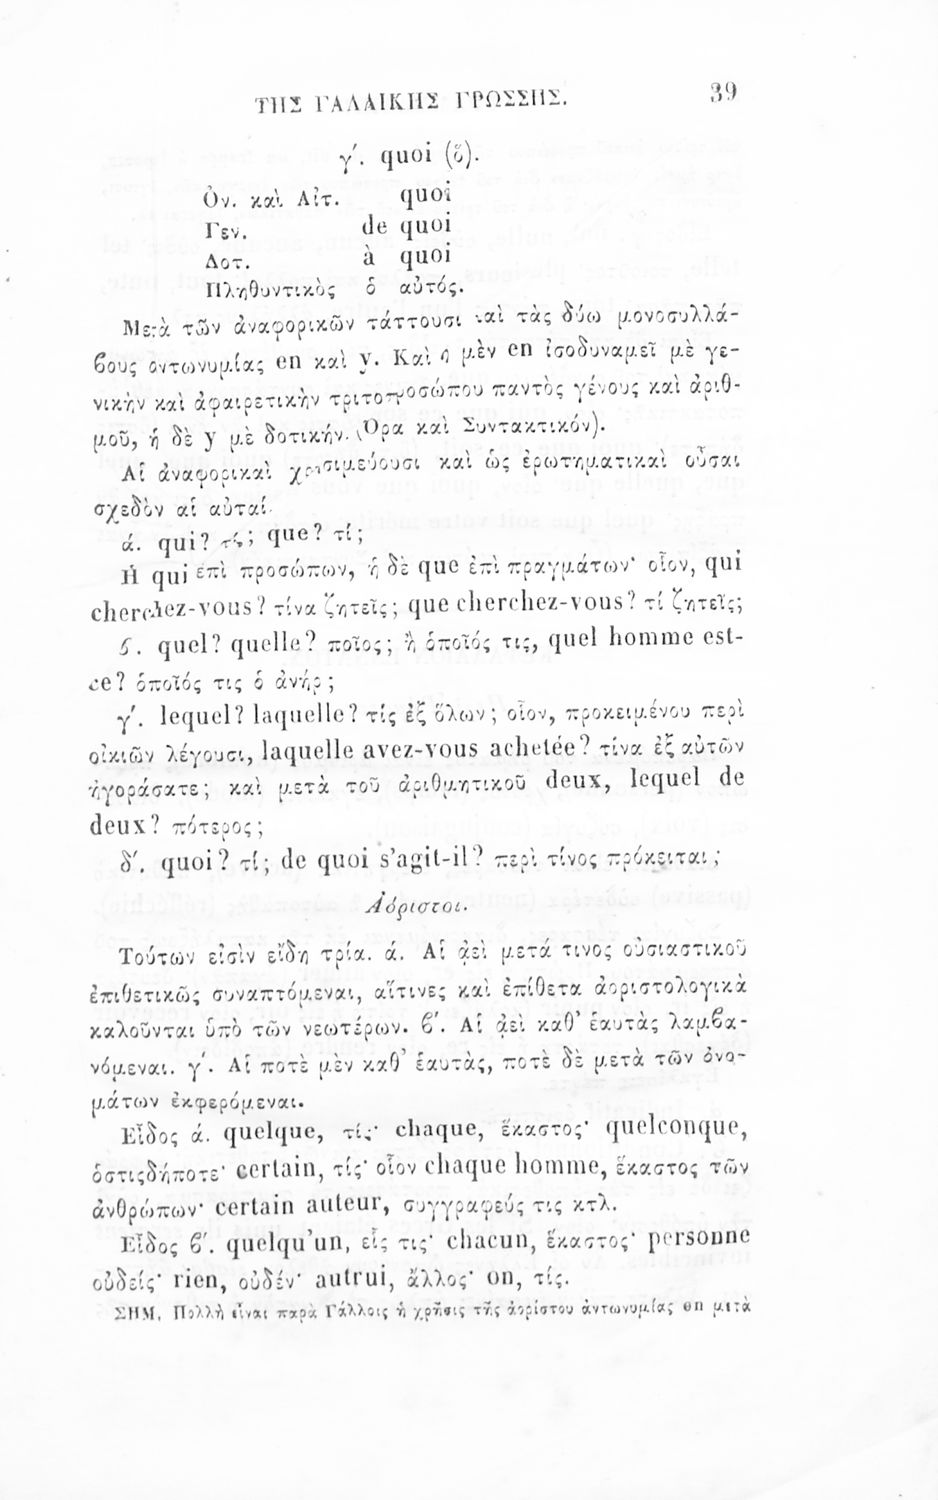 ΤΗΣ ΓΑΛΛΙΚΗΣ ΓΡΩΣΣΗΣ. 39
γ΄. quoi (ὅ).
Ὀν. καὶ Αἰτ. quoi
Γεν. de quoi
Δοτ. à quoi
Πληθυντικὸς ὁ αὐτός.
Μετὰ τῶν ἀναφορικῶν τάττουσι καὶ τὰς δύω μονοσυλλά-
βους ἀντωνυμίας en καὶ y. Καὶ ἡ μὲν en ἰσοδυναμεῖ μὲ γε-
νικὴν καὶ ἀφαιρετικὴν τριτοπροσώπου παντὸς γένους καὶ ἀριθ-
μοῦ, ἡ δὲ y μὲ δοτικήν. (Ὅρα καὶ Συντακτικόν).
Αἱ ἀναφορικαὶ χρησιμεύουσι καὶ ὡς ἐρωτηματικαὶ οὖσαι
σχεδὸν αἱ αὐταί.
ά. qui? τίς; que? τί;
Ἡ qui ἐπὶ προσώπων, ἡ δὲ que ἐπὶ πραγμάτων· οἷον, qui
cherchez-vous? τίνα ζητεῖς; que cherchez-vous? τί ζητεῖς;
β. quel? quelle? ποῖος; ἢ ὁποῖός τις, quel homme est-
ce? ὁποῖός τις ὁ ἀνήρ;
γ΄. lequel? laquelle? τίς ἐξ ὅλων; οἷον, προκειμένου περὶ
οἰκιῶν λέγουσι, laquelle avez-vous achetée? τίνα ἐξ αὐτῶν
ἠγοράσατε; καὶ μετὰ τοῦ ἀριθμητικοῦ deux, lequel de
deux? πότερος;
δ΄. quoi? τί; de quoi s'agit-il? περὶ τίνος πρόκειται;
Ἀόριστοι.
Τούτων εἰσὶν εἴδη τρία. ά. Αἱ ἀεὶ μετά τινος οὐσιαστικοῦ
ἐπιθετικῶς συναπτόμεναι, αἵτινες καὶ ἐπίθετα ἀοριστολογικὰ
καλοῦνται ὑπὸ τῶν νεωτέρων. β΄. Αἱ ἀεὶ καθ' ἑαυτὰς λαμβα-
νόμεναι. γ΄. Αἱ ποτὲ μὲν καθ' ἑαυτὰς, ποτὲ δὲ μετὰ τῶν ὀνο-
μάτων ἐκφερόμεναι.
Εἶδος ά. quelque, τίς· chaque, ἕκαστος· quelconque,
ὁστιςδήποτε· certain, τίς· οἷον chaque homme, ἕκαστος τῶν
ἀνθρώπων· certain auteur, συγγραφεύς τις κτλ.
Εἶδος β΄. quelqu'un, εἷς τις· chacun, ἕκαστος· personne
οὐδείς· rien, οὐδέν· autrui, ἄλλος· on, τίς.
ΣΗΜ. Πολλὴ εἶναι παρὰ Γάλλοις ἡ χρῆσις τῆς ἀορίστου ἀντωνυμίας on μετὰ